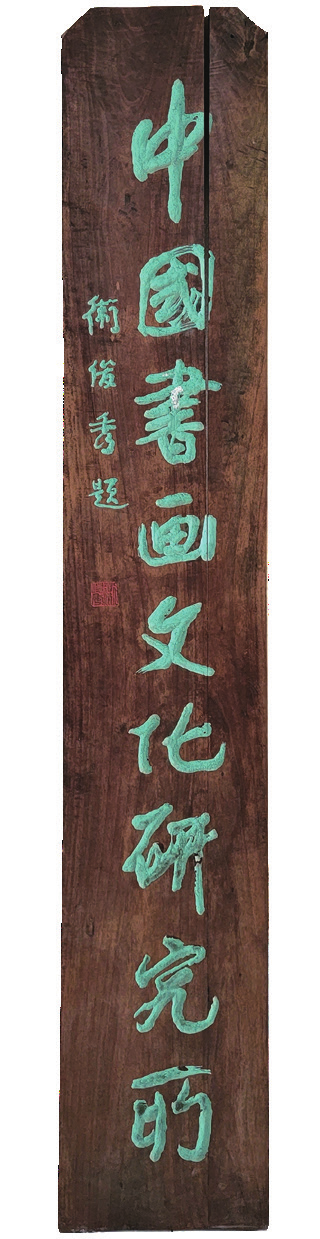 中國書画文化研究所
衛俊秀題